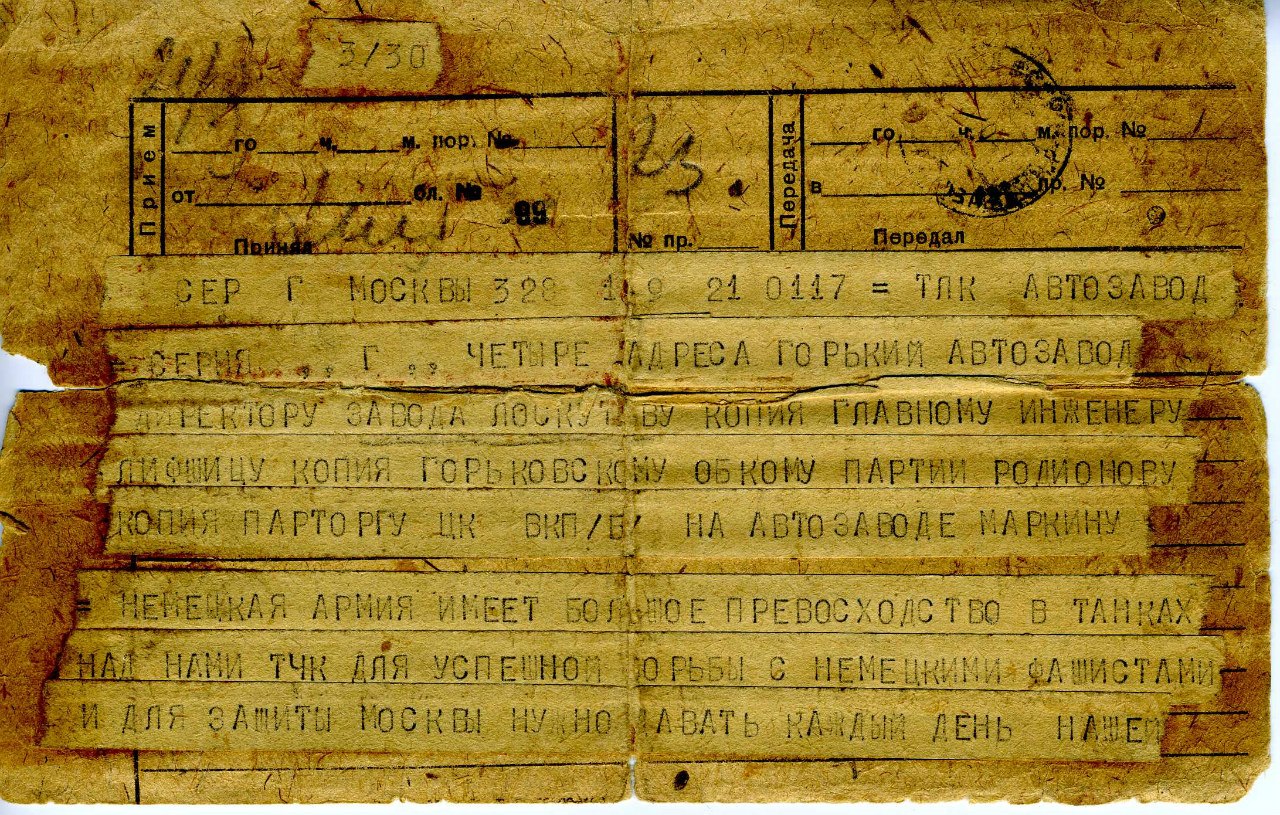 3/30
Прием
го ч. м. пор. №
от бл. №
99
Принял
№ пр.
Передача
го ч. м. пор. №
в пр. №
Передал
СЕР Г МОСКВЫ 328 1 9 21 0117 = ТЛК АВТОЗАВОД
= СЕРИЯ ,, Г ,, ЧЕТЫРЕ АДРЕСА ГОРЬКИЙ АВТОЗАВОД
ДИРЕКТОРУ ЗАВОДА ЛОСКУТ ВУ КОПИЯ ГЛАВНОМУ ИНЖЕНЕРУ
ЛИФШИЦУ КОПИЯ ГОРЬКОВСКОМУ ОБКОМУ ПАРТИИ РОДИОНОВУ
КОПИЯ ПАРТОРГУ ЦК ВКП/Б/ НА АВТОЗАВОДЕ МАРКИНУ
= НЕМЕЦКАЯ АРМИЯ ИМЕЕТ БОЛЬШОЕ ПРЕВОСХОДСТВО В ТАНКАХ
НАД НАМИ ТЧК ДЛЯ УСПЕШНОЙ БОРЬБЫ С НЕМЕЦКИМИ ФАШИСТАМИ
И ДЛЯ ЗАЩИТЫ МОСКВЫ НУЖНО ДАВАТЬ КАЖДЫЙ ДЕНЬ НАШЕЙ